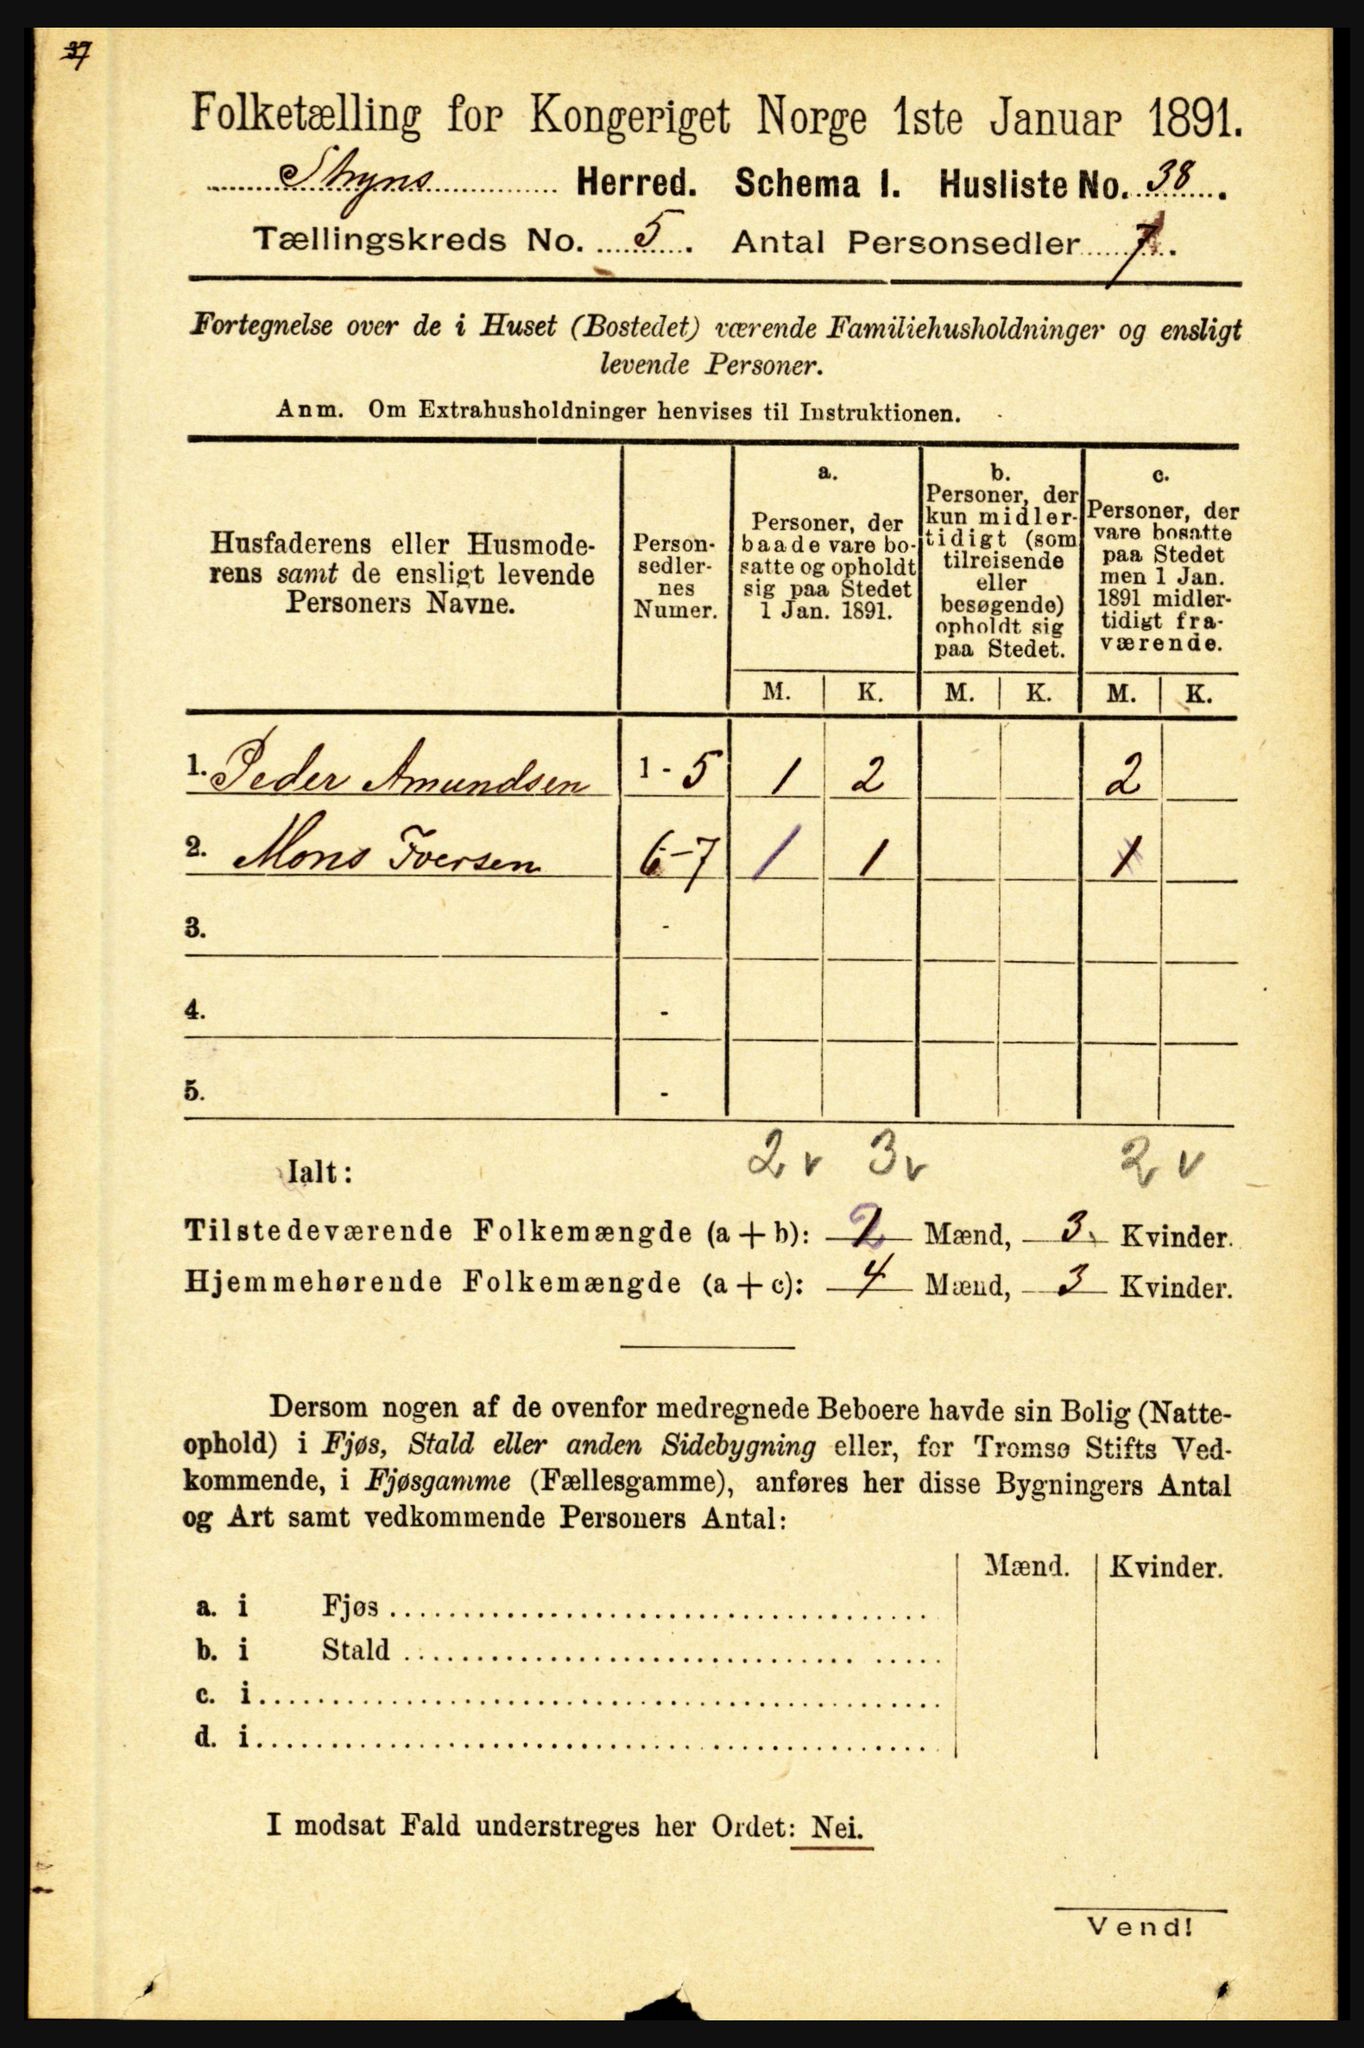 37
Folketælling for Kongeriget Norge 1ste Januar 1891.
Stryns Herred. Schema I. Husliste No. 38.
Tællingskreds No. 5. Antal Personsedler 7.
Fortegnelse over de i Huset (Bostedet) værende Familiehusholdninger og ensligt
levende Personer.
Anm. Om Extrahusholdninger henvises til Instruktionen.
Husfaderens eller Husmode-
rens samt de ensligt levende
Personers Navne.
Person-
sedler-
nes
Numer.
a.
Personer, der
baade vare bo-
satte og opholdt
sig paa Stedet
1 Jan. 1891.
b.
Personer, der
kun midler-
tidigt (som
tilreisende
eller
besøgende)
opholdt sig
paa Stedet.
c.
Personer, der
vare bosatte
paa Stedet
men 1 Jan.
1891 midler-
tidigt fra-
værende.
M. K. M. K. M. K.
1. Peder Amundsen 1 - 5 1 2 2
2. Mons Iversen 6-7 1 1 1
3. -
4. -
5. -
Ialt: 2 v 3 v 2 v
Tilstedeværende Folkemængde (a + b): 2 Mænd, 3 Kvinder.
Hjemmehørende Folkemængde (a + c): 4 Mænd, 3 Kvinder.
Dersom nogen af de ovenfor medregnede Beboere havde sin Bolig (Natte-
ophold) i Fjøs, Stald eller anden Sidebygning eller, for Tromsø Stifts Ved-
kommende, i Fjøsgamme (Fællesgamme), anføres her disse Bygningers Antal
og Art samt vedkommende Personers Antal:
Mænd. Kvinder.
a. i Fjøs
b. i Stald
c. i
d. i
I modsat Fald understreges her Ordet: Nei.
Vend!